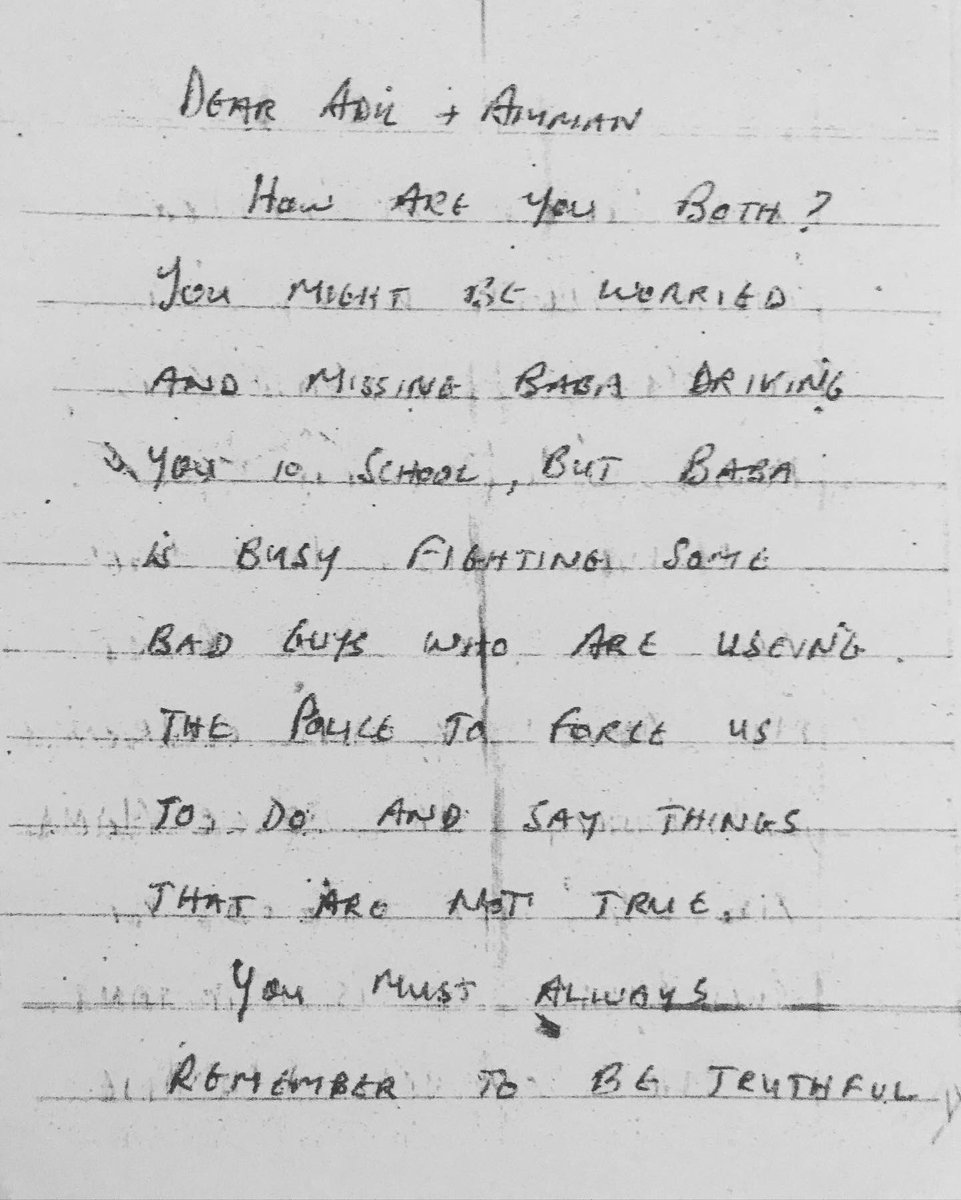 DEAR ADIL + AMMAN
HOW ARE YOU BOTH?
YOU MIGHT BE WORRIED
AND MISSING BABA DRIVING
YOU TO SCHOOL, BUT BABA
IS BUSY FIGHTING SOME
BAD GUYS WHO ARE USEING
THE POLICE TO FORCE US
TO DO AND SAY THINGS
THAT ARE NOT TRUE.
YOU MUST ALWAYS
REMEMBER TO BE TRUTHFUL